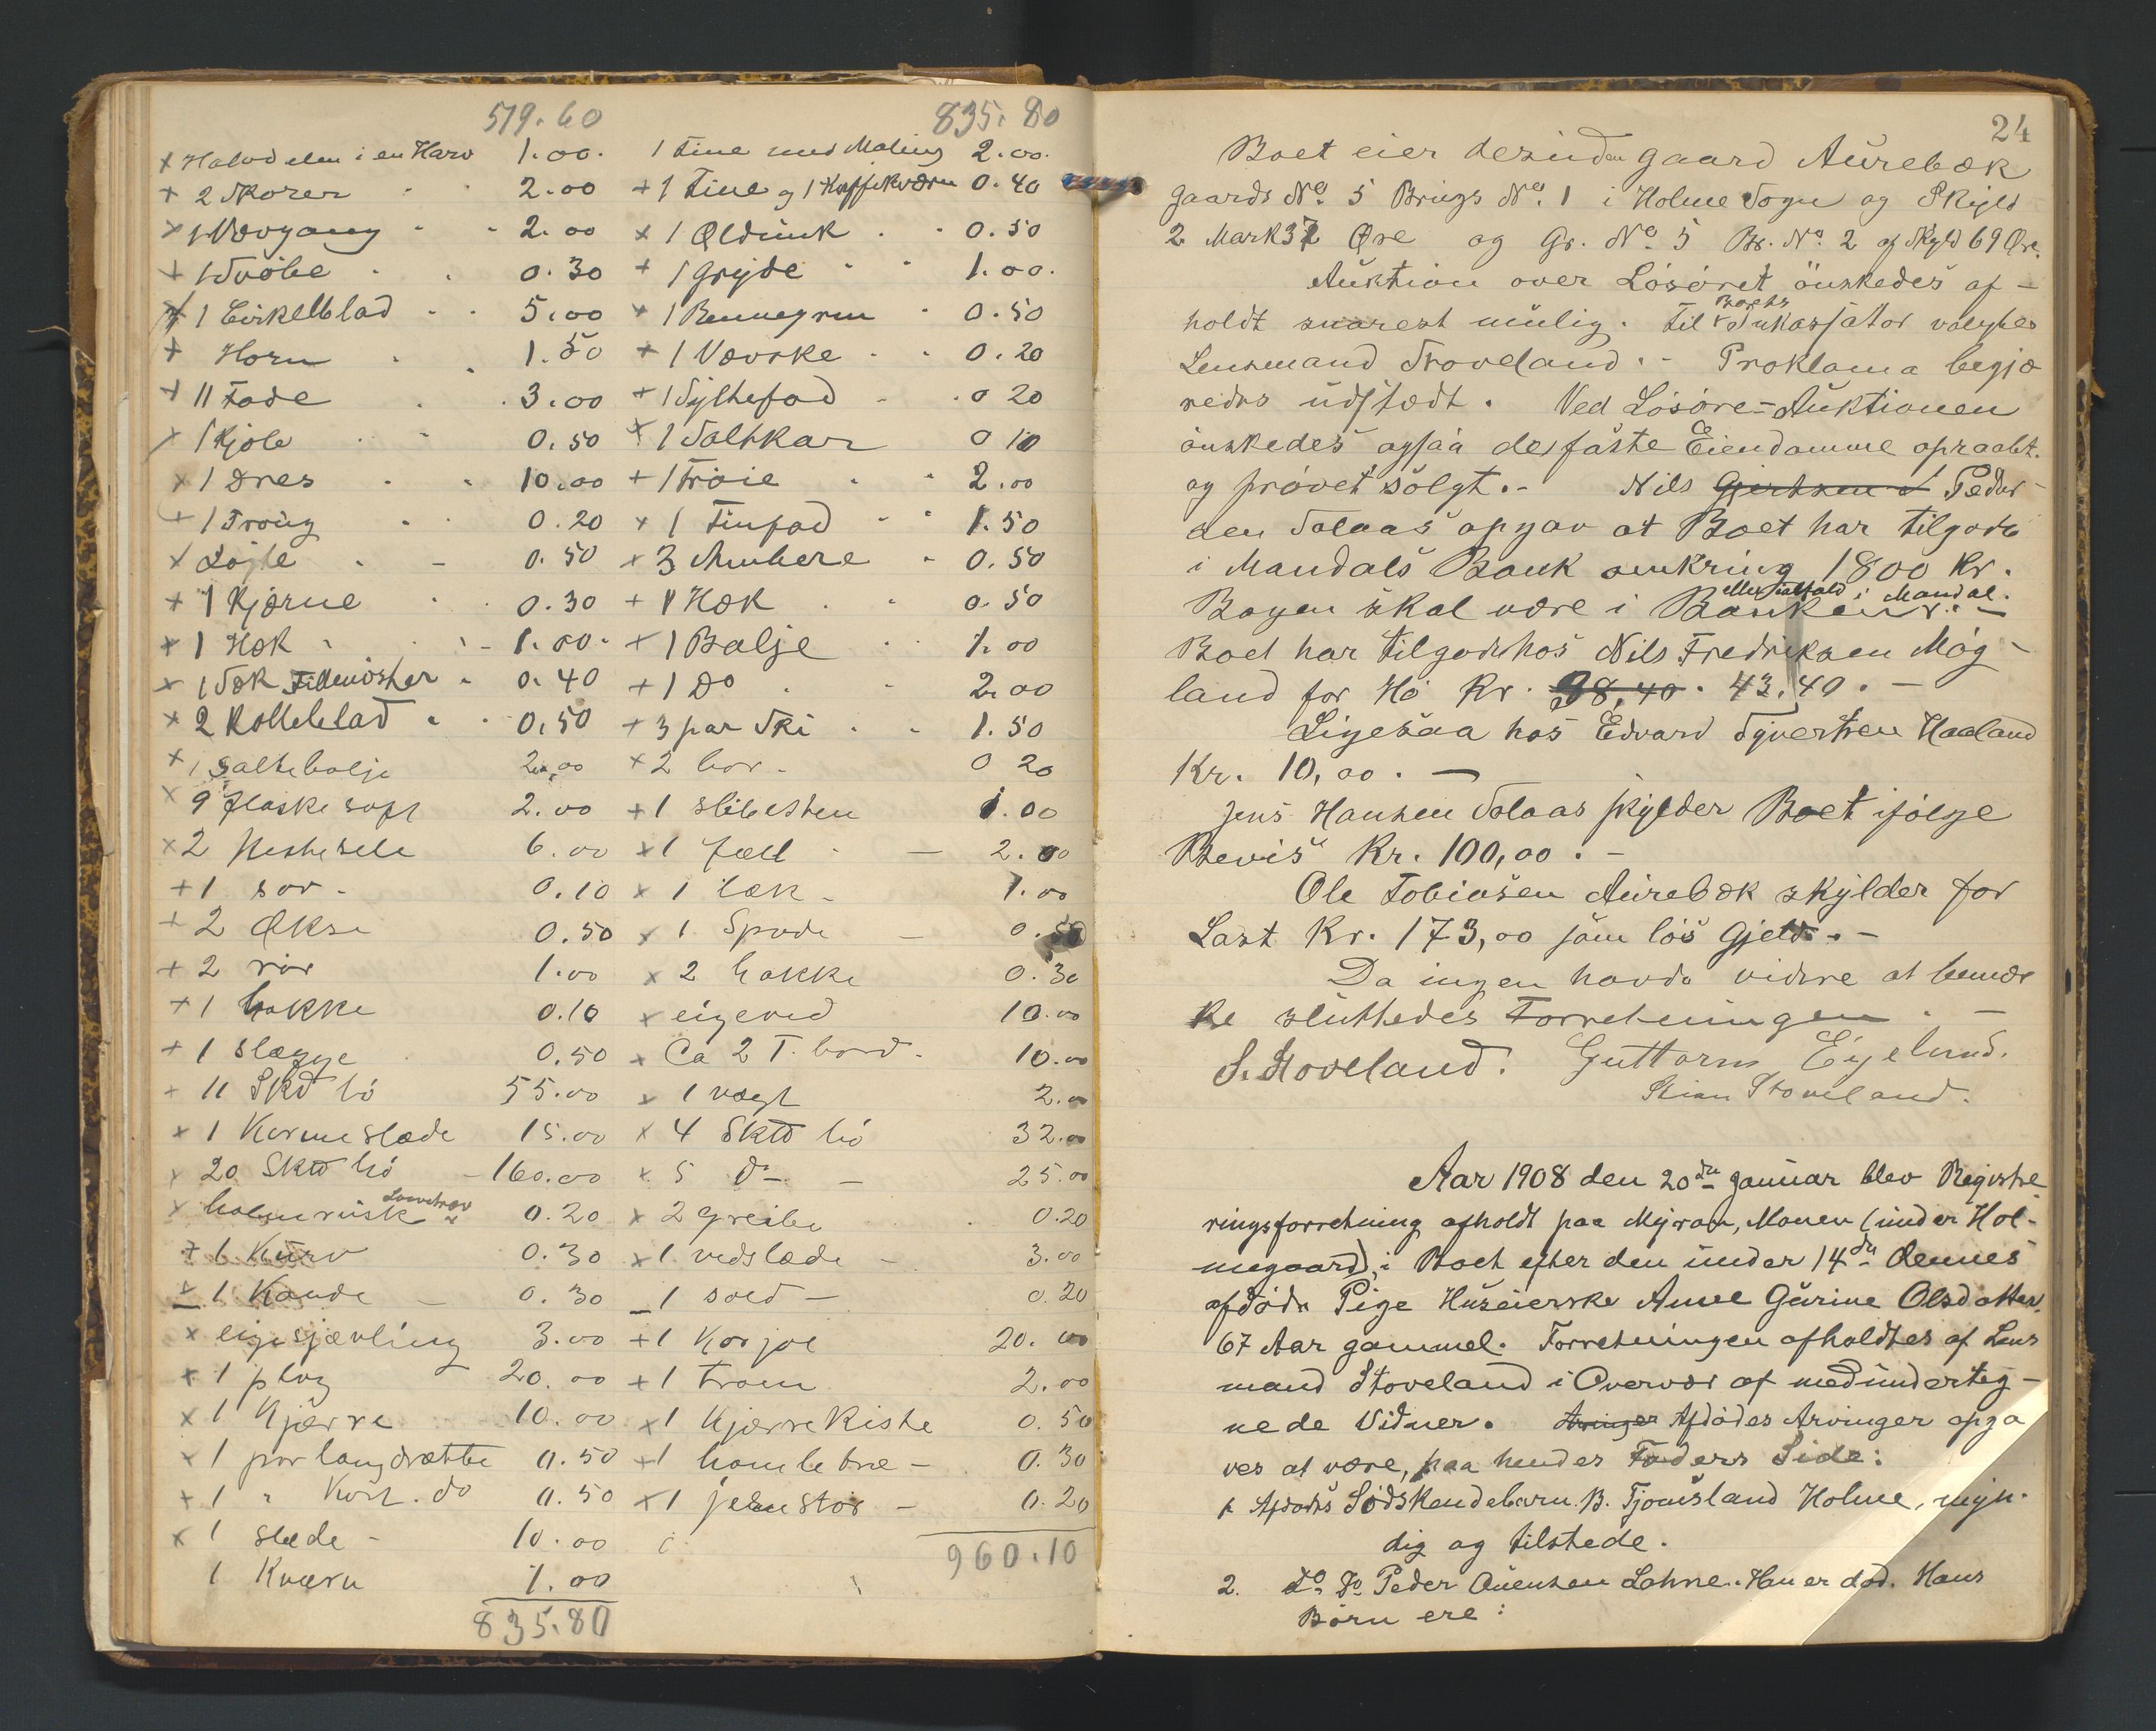 519.60
x Halvdelen i en Harv 1.00.
+ 2 Skorer 2.00
x 1 Vævgang 2.00
+ 1 Svøbe 0.30
x 1 Cirkelblad 5.00
+ Horn 1.50
+ 11 Fade 3.00
x 1 Kjole 0.50
x 1 Dres 10.00
+ 1 Troug 0.20
x Løgte 0.50
+ 1 Kjærne 0.30
+ 1 Hæk 1.00
x 1 Sæk Filleuisker 0.40
x 2 Rolleblad 0.50
x 1 saltebalje 2.00
x 9 flaske saft 2.00
x 2 Hestesele 6.00
+ 1 sav 0.10
+ 2 Økse 0.50
+ 2 rør 1.00
+ 1 hakke 0.10
+ 1 slægge 0.50
+ 11 Skd hö 55.00
x 1 Karmeslæde 15.00
x 20 Sktd hö 160.00
x halmrusk Løvetræv 0.20
+ 6 Kurv 0.30
x 1 Kande 0.30
x eigesjævling 3.00
x 1 plog 20.00
x 1 Kjærre 10.00
x 1 par langdrætte 0.50
+ 1 " Kort. do 0.50
x 1 slede 10.00
1 Kværn 1.00
835.80
835.80
1 Tine med Maling 2.00.
+ 1 Tine og 1 Kaffekværn 0.40
x 1 Øldunk 0.50
+ 1 Gryde 1.00.
+ 1 0.50
+ 1 Vævske 0.20
+ 1 Syltefad 0 20
x 1 Saltkar 0 10
+ 1 Trøie 2.00
x 1 Tinfad 1.50
x 3 Ambere 0.50
+ 1 Hæk 0.50
x 1 Balje 1.00
+ 1 Do 2.00
+ 3 par Ski 1.50
x 2 bor 0 20
+ 1 slibesten 1.00
x 1 fæll 2.00
x 1 læk 1.00
x 1 Spade 0.50
x 2 hakke 0.30
x eigeved 10.00
x Ca 2 T. bord 10.00
x 1 vægt 2.00
x 4 Sktd hö 32.00
x 5 do 25.00
x 2 greibe 0.20
x 1 vedslæde 3.00
1 sold 0.20
+ 1 Karjol 20.00
+ 1 tram 2.00
x 1 Kjærrekiste 0.50
+ 1 hamletræ 0.30
x 1 jernstör 0.20
960.10
24
Boet eier desuden gaard Aurebæk
gaards No. 5 Brugs No. 1 i Holme Sogn og Skyld
2 Mark 37 Øre og Gr. No. 5 Br. No. 2 af Skyld 69 Øre.
Auktion over Løsøret ønskedes af-
holdt snarest mulig. Til Boets Inkassator valgtes
Lensmand Stoveland. - Proklama begjæ
redes udstædt. Ved Løsøre-Auktionen
ønskedes ogsaa de faste Eiendomme opraabt
og prøvet solgt. - Nils Gjertsen Peder-
sen Solaas opgav at Boet har tilgode
i Mandals Bank omkring 1800 Kr.
Bogen skal være i Banken eller ialfald i Mandal. -
Boet har tilgode hos Nils Fredriksen Møg-
land for Hø Kr. 38,40. 43,40. -
Ligesaa hos Edvard Syvertsen Haaland
Kr. 10,00. -
Jens Hansen Solaas skylder Boet ifølge
Bevis Kr. 100,00. -
Ole Tobiasen Aurebæk skylder for
Last Kr. 173,00 som løs Gjeld. -
Da ingen havde videre at bemær
ke sluttedes Forretningen. -
S. Stoveland. Guttorm Eigelund.
Stian Stoveland.
Aar 1908 den 20de Januar blev Registre
ringsforretning afholdt paa Myran, Monen (under Hol-
megaard), i Boet efter den under 14de dennes
afdøde Pige Huseierske Anne Gurine Olsdatter,
67 Aar gammel. Forretningen afholdtes af Lens
mand Stoveland i Overvær af medunderteg-
nede Vidner. Arvinger Afdødes Arvinger opga
ves at være, paa hendes Faders Side:
1. Afdødes Sødskendebarn B. Tjomsland Holme, myn-
dig og tilstede.
2. do. do Peder Auensen Lohne. Han er død. Hans
Børn ere: